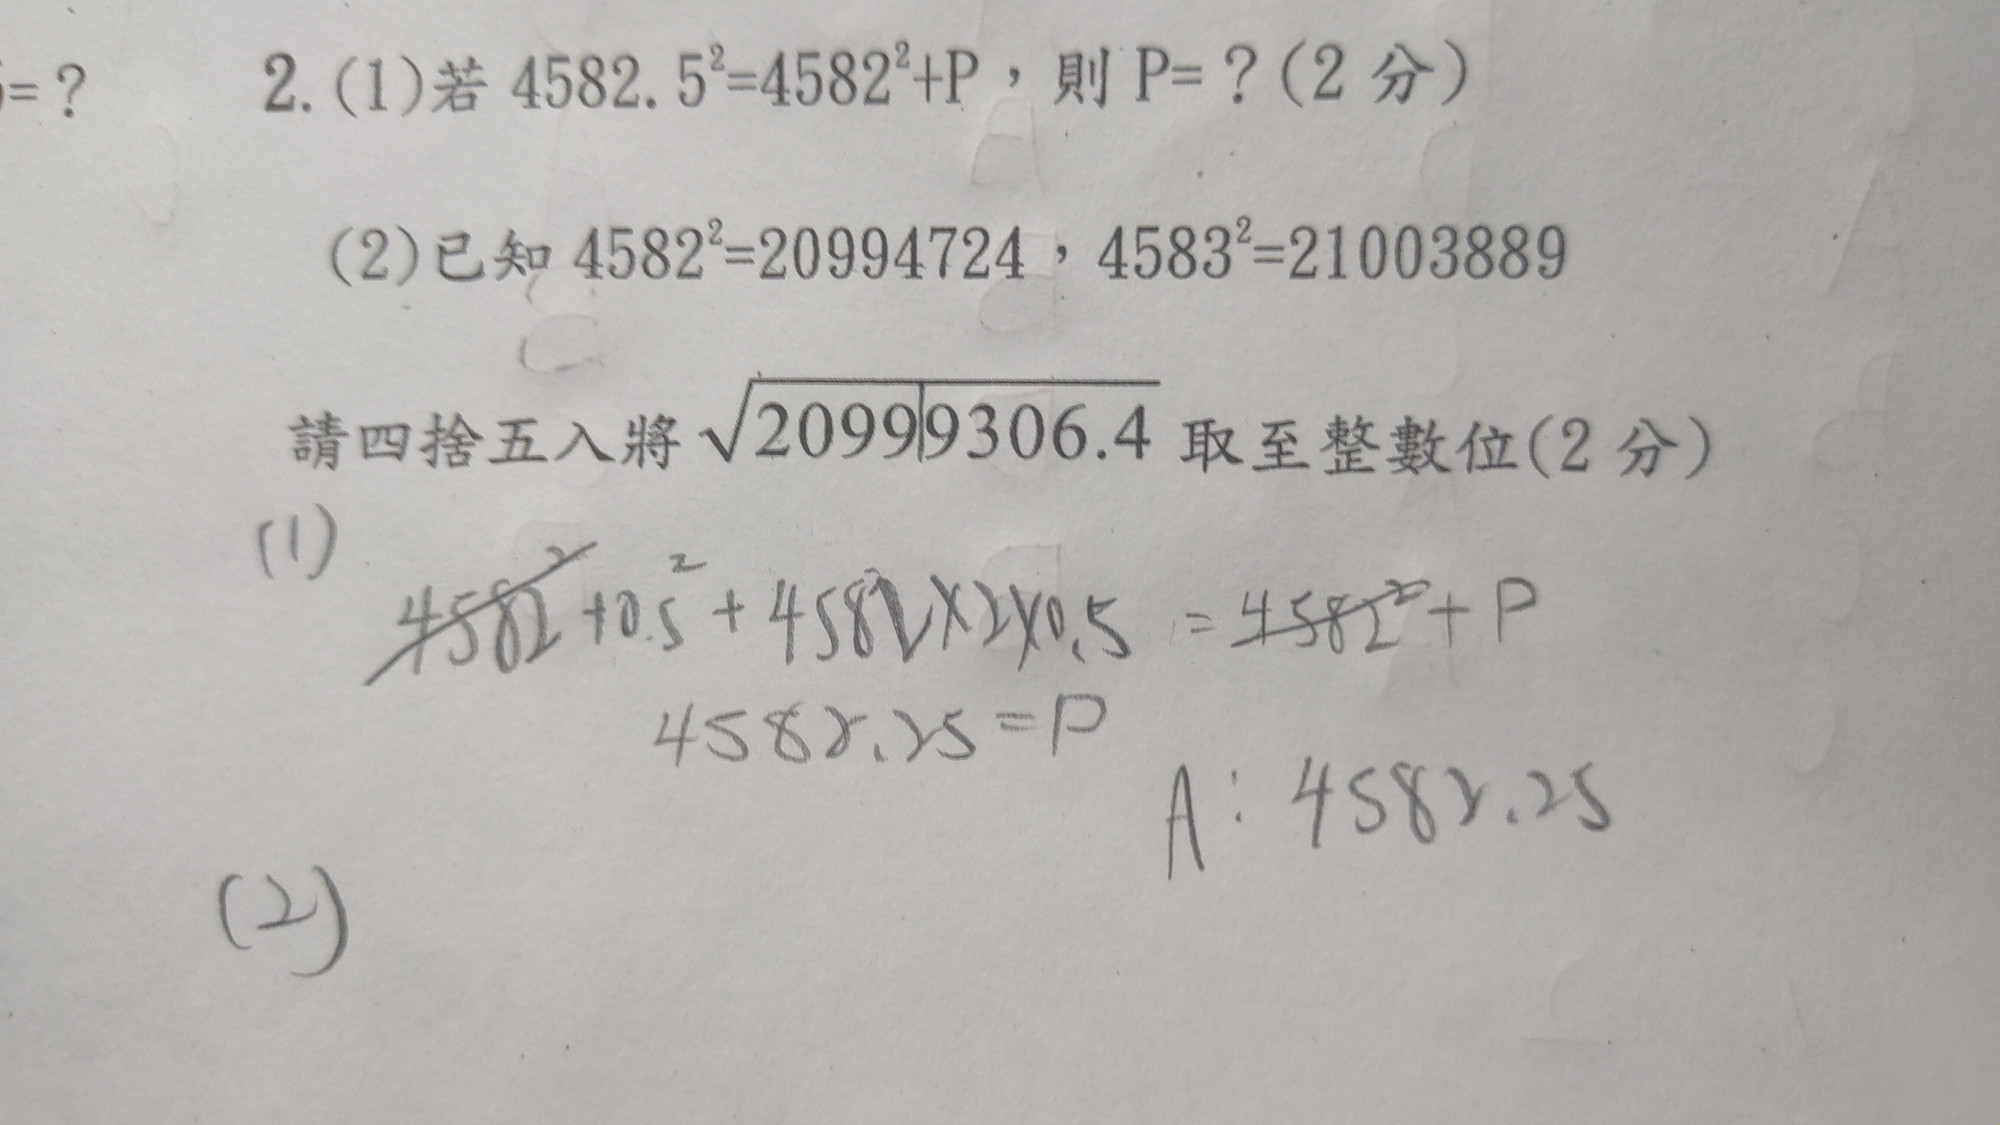 =? 2.(1)若 4582.5²=4582²+P，則 P=?(2 分)
(2)已知 4582²=20994724，4583²=21003889
請四捨五入將 √20999306.4 取至整數位(2 分)
(1)
4582²+0.5²+4582×2×0.5 = 4582²+P
4582.25=P
A：4582.25
(2)